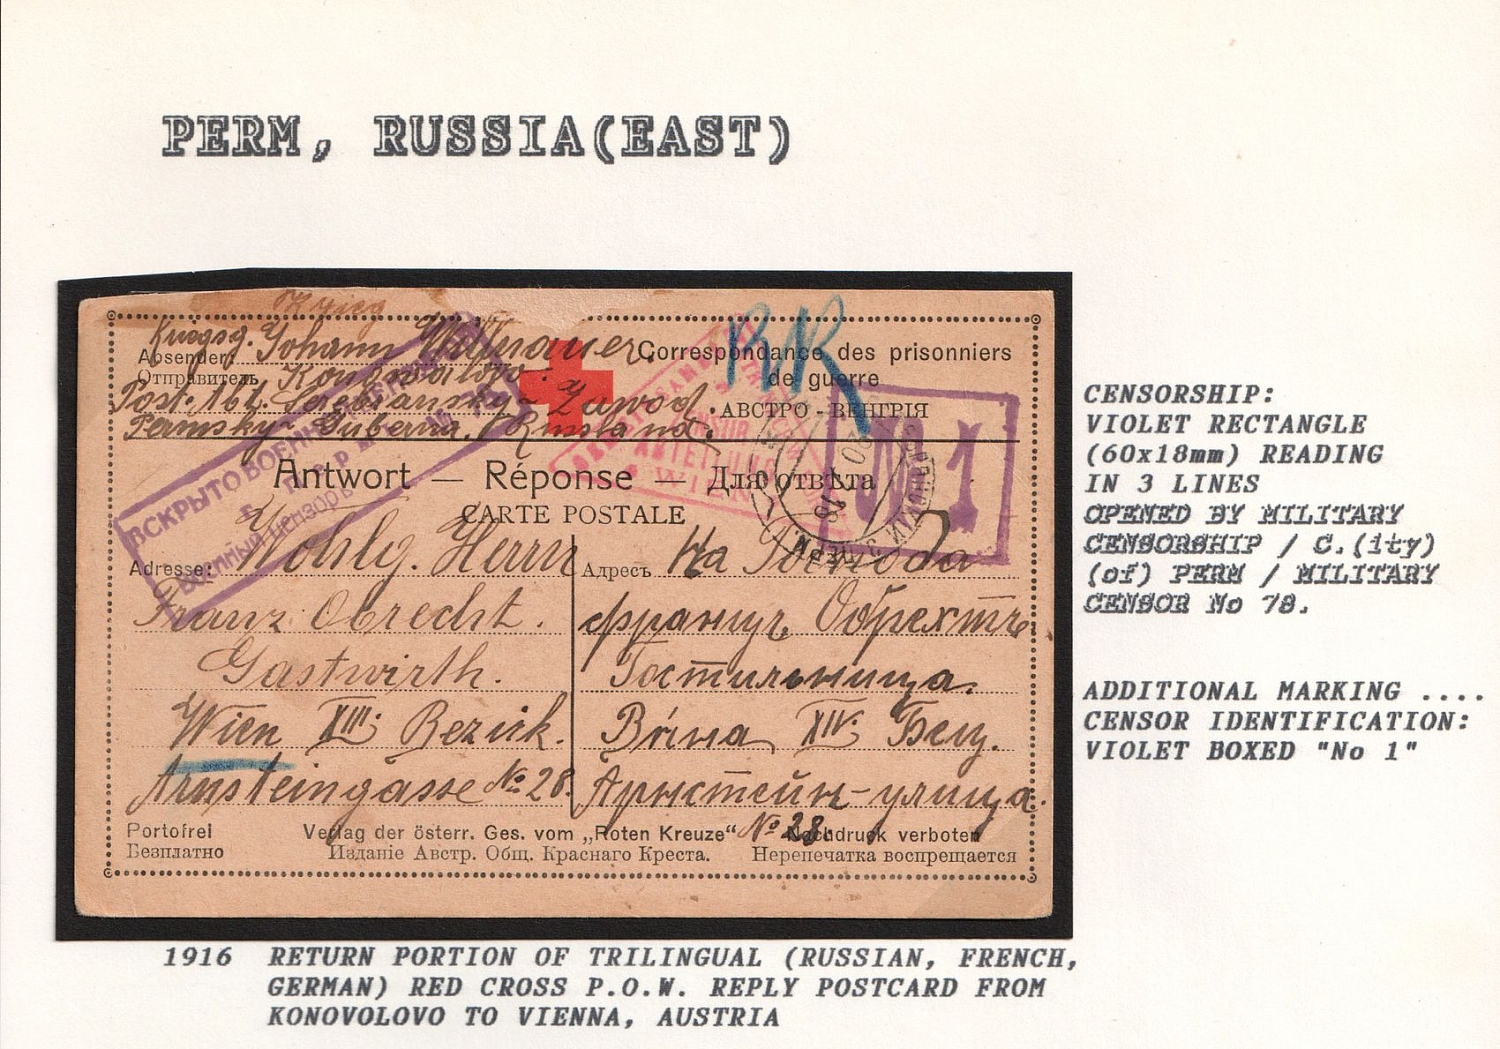 PERM, RUSSIA(EAST)
Kriegsg. Johann
Absender:
Отправитель
Post. Abt. Serebiansky-Zawod.
Permsky- Guberna. Russland.
Correspondance des prisonniers
de guerre
АВСТРО - ВЕНГРІЯ
RR
No 1
ВСКРЫТО ВОЕНН
Военный Цензоръ
ZENSUR
ABTEILUNG
WIEN
Antwort — Réponse — Для отвѣта
CARTE POSTALE
Adresse: Wohlg. Herrn
Franz Obrecht.
Gastwirth.
Wien XIII. Bezirk.
Arnsteingasse No 28.
Адресъ На Господа
Францъ Обрехтъ
Гостильница.
Вѣна XIV. Бец.
Арнстейн-улица.
No 28.
Portofrei
Verlag der österr. Ges. vom „Roten Kreuze“
Nachdruck verboten
Безплатно
Изданіе Австр. Общ. Краснаго Креста.
Нерепечатка воспрещается
CENSORSHIP:
VIOLET RECTANGLE
(60x18mm) READING
IN 3 LINES
OPENED BY MILITARY
CENSORSHIP / C.(ity)
(of) PERM / MILITARY
CENSOR No 78.
ADDITIONAL MARKING ....
CENSOR IDENTIFICATION:
VIOLET BOXED "No 1"
1916 RETURN PORTION OF TRILINGUAL (RUSSIAN, FRENCH,
GERMAN) RED CROSS P.O.W. REPLY POSTCARD FROM
KONOVOLOVO TO VIENNA, AUSTRIA